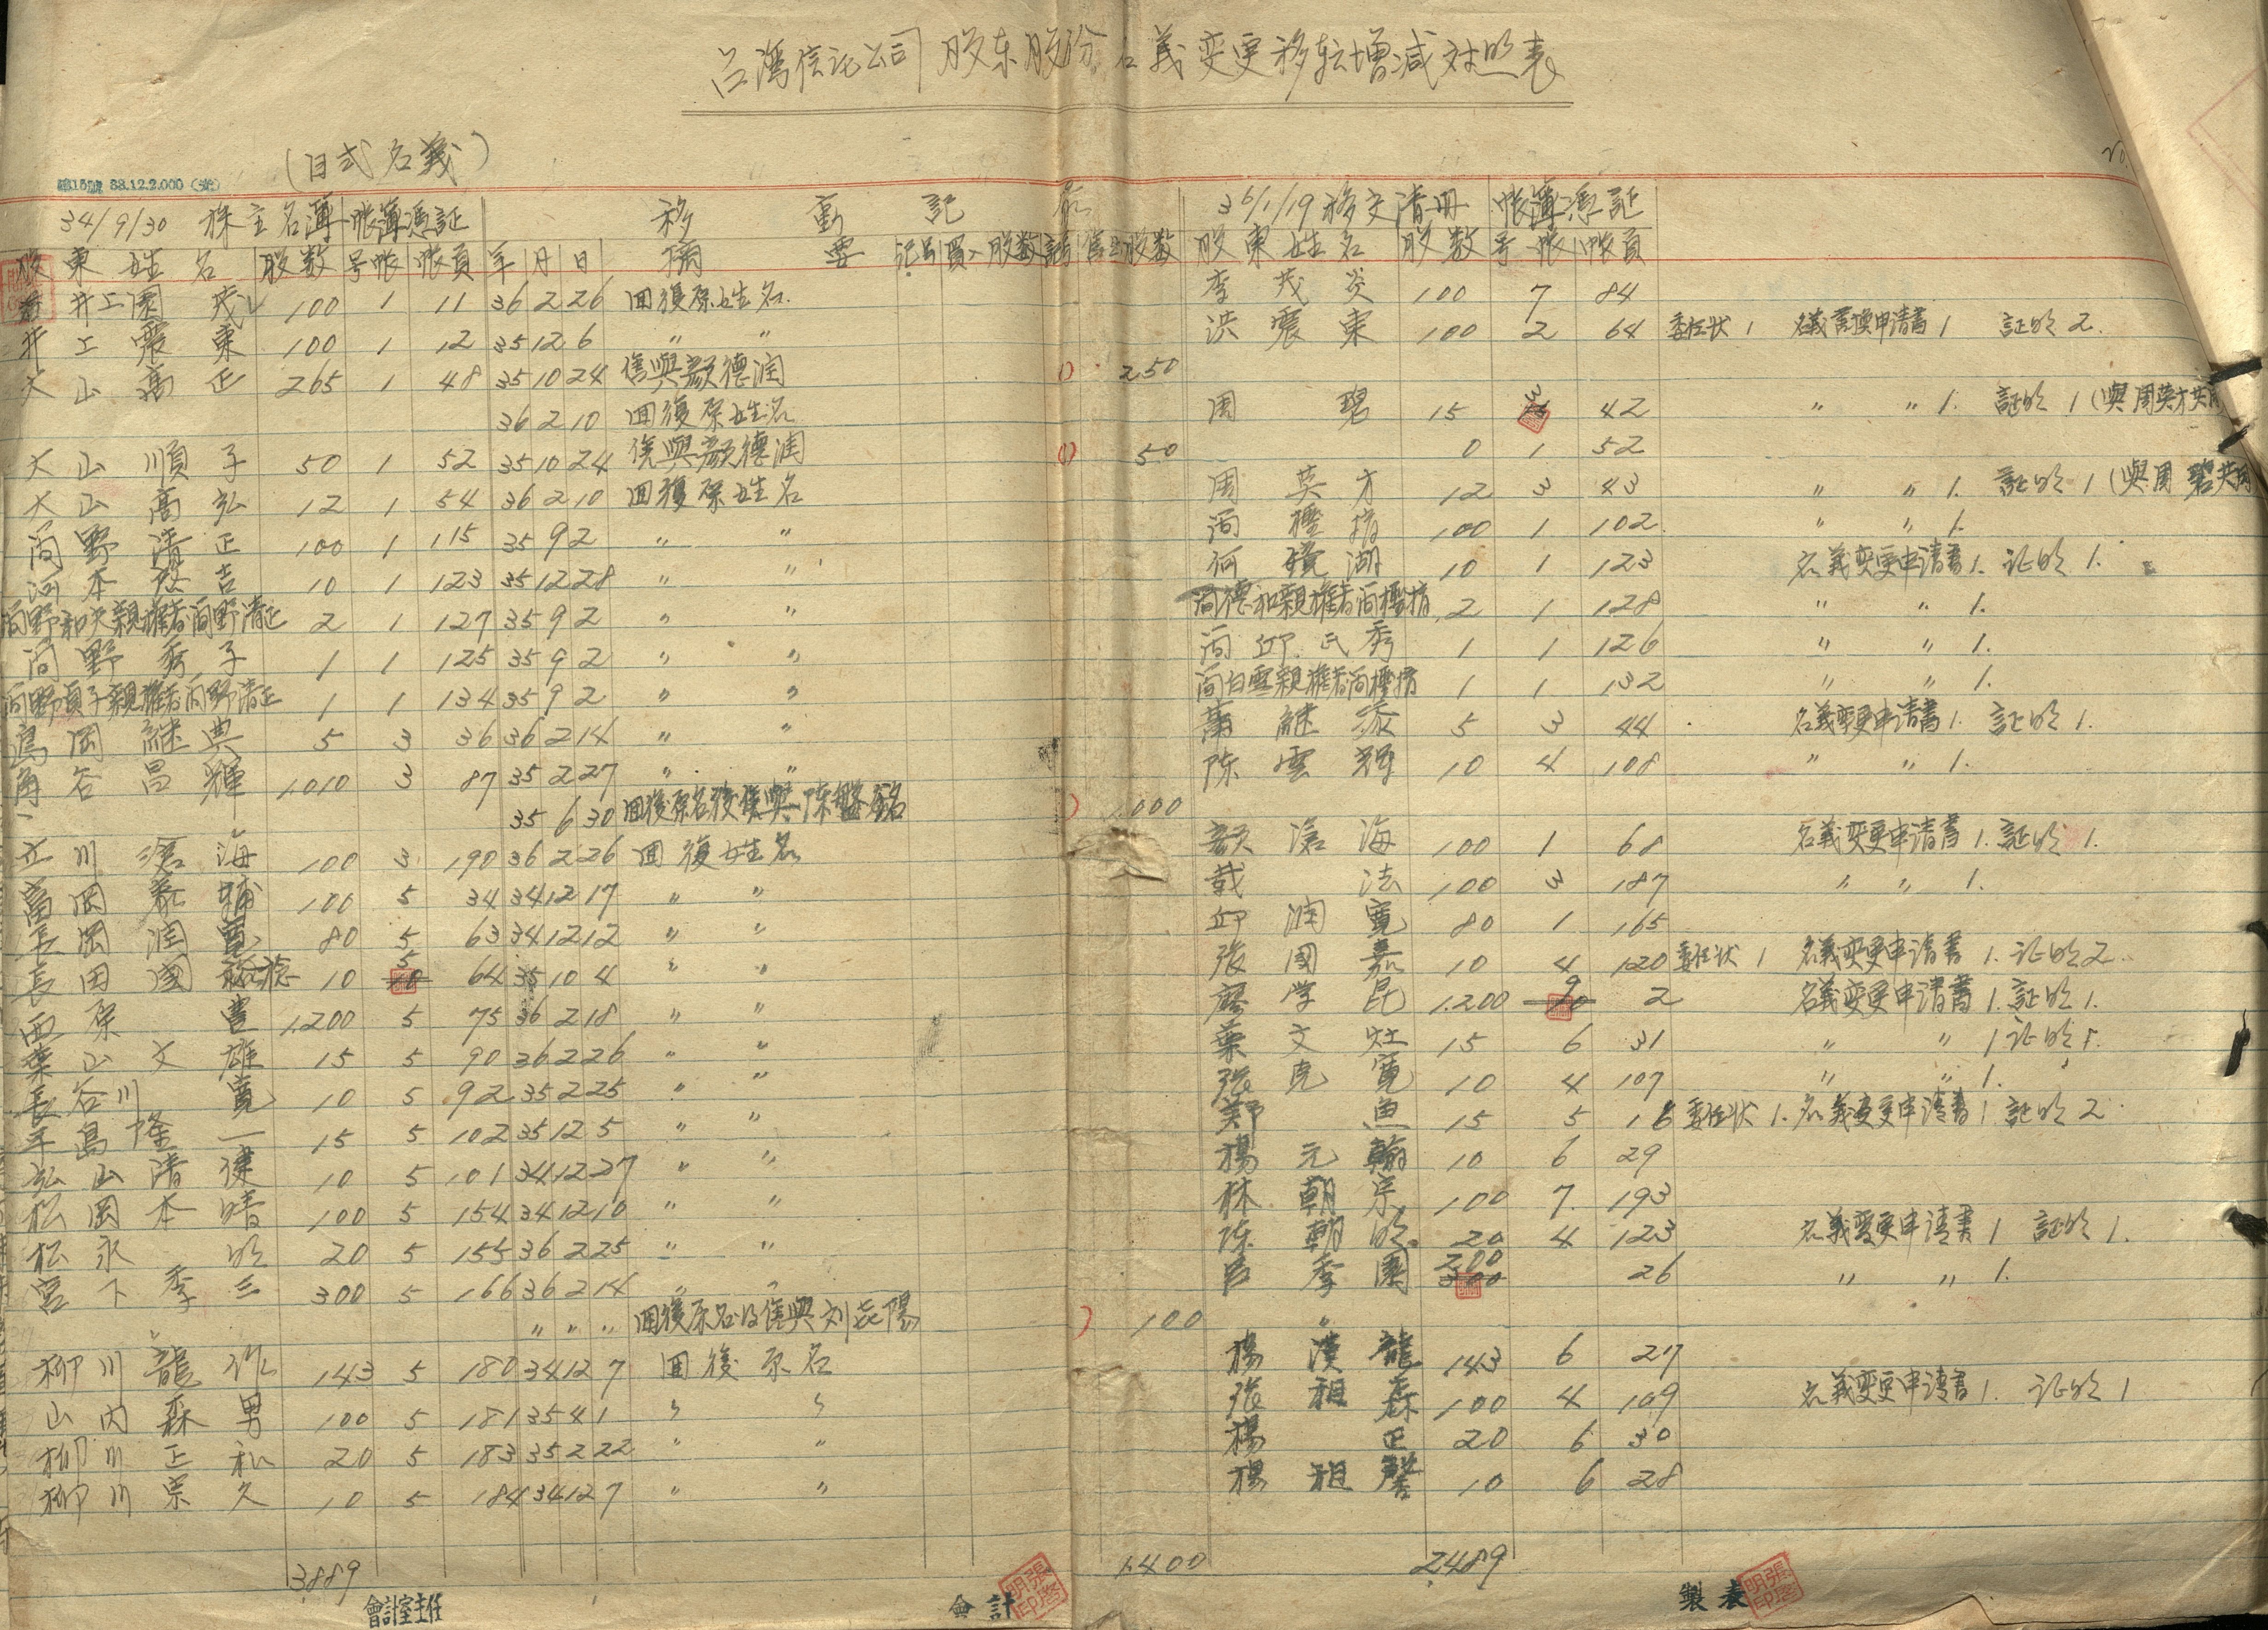 台湾信託公司股东股份名義变更移転增減对照表
(日式名義)
第15號 38.12.2.000
34/9/30 株主名簿 帐簿憑証 移動記 36/1/19移交清册 帐簿憑証
股東姓名 股数 号帐 帐頁 年 月 日 摘要 買入股数 售出股数 股東姓名 股数 号帐 帐頁
井上園茂 100 1 11 36 2 26 回復原姓名. 李茂炎 100 7 84
井上震東 100 1 12 35 12 6 〃 〃 洪震東 100 2 64 委任状 1 名義書換申請書 1. 証明 2.
大山高正 265 1 48 35 10 24 售與顏德潤 250
36 2 10 回復原姓名 周碧 15 3 42 〃 〃 1. 証明 1 (與周英才共用
大山順子 50 1 52 35 10 24 售與顏德潤 50 0 1 52
大山高弘 12 1 54 36 2 10 回復原姓名 周英才 12 3 43 〃 〃 1. 証明 1 (與周碧共用
簡野清正 100 1 115 35 9 2 〃 〃 100 1 102. 〃 〃 1.
河本 吉 10 1 123 35 12 28 〃 〃 何鏡湖 10 1 123 名義变更申请書 1. 证明 1.
簡野和夫親権者簡野清正 2 1 127 35 9 2 〃 〃 簡德和親権者簡 2 1 128 〃 〃 1.
簡野秀子 1 1 125 35 9 2 〃 〃 簡邱氏秀 1 1 126 〃 〃 1.
簡野貞子親権者簡野清正 1 1 134 35 9 2 〃 〃 簡白雲親権者簡 1 1 132 〃 〃 1.
島岡継典 5 3 36 36 2 14 〃 〃 葉継添 5 3 44 名義变更申请書 1. 証明 1.
角谷昌輝 1,010 3 87 35 2 27 〃 〃 陈雲輝 10 4 108 〃 〃 1.
35 6 30 回復原名後售與陈 銘 1,000
立川滄海 100 3 190 36 2 26 回復姓名 顏滄海 100 1 68 名義变更申请書 1. 証明 1.
富岡 輔 100 5 34 34 12 17 〃 〃 戴法 100 3 187 〃 〃 1.
長岡潤寛 80 5 63 34 12 12 〃 〃 邱潤寛 80 1 165
長田國 10 5 64 35 10 4 〃 〃 張國嘉 10 4 120 委任状 1 名義变更申请書 1. 证明 2.
西原豊 1,200 5 75 36 2 18 〃 〃 廖学昆 1,200 9 2 名義变更申请書 1. 証明 1.
葉山文雄 15 5 90 36 2 26 〃 〃 葉文灶 15 6 31 〃 〃 1 证明 1.
長谷川寛 10 5 92 35 2 25 〃 〃 張克寛 10 4 107 〃 〃 1.
平島隆一 15 5 102 35 12 5 〃 〃 鄭魚 15 5 16 委任状 1. 名義变更申请書 1 証明 2
弘山清健 10 5 101 34 12 27 〃 〃 楊元翰 10 6 29
松岡本晴 100 5 154 34 12 10 〃 〃 林朝宗 100 7. 193
松永明 20 5 155 36 2 25 〃 〃 陈朝明 20 4 123 名義变更申请書 1 証明 1.
宮下季三 300 5 166 36 2 14 〃 〃 呂季園 200 26 〃 〃 1.
〃 〃 〃 回復原名及售與刘 陽 100 〃
柳川龍作 143 5 180 34 12 7 回復原名 楊漢龍 143 6 27
山内森男 100 5 181 35 4 1 〃 〃 張祖森 100 4 109 名義变更申请書 1. 证明 1
柳川正和 20 5 183 35 2 22 〃 〃 楊正 20 6 30
柳川宗久 10 5 184 34 12 7 〃 〃 楊祖馨 10 6 28
3889 1,400 2,489
會計室主任 會計 張啓明印 製表 張啓明印